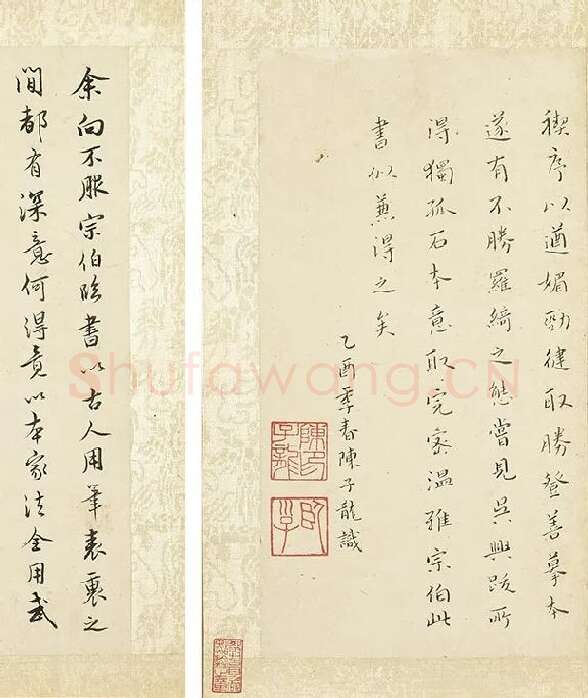 禊序以遒媚勁健取勝登善摹本
遂有不勝羅綺之態嘗見吳興跋所
得獨孤石本意取完密溫雅宗伯此
書似兼得之矣
乙酉季春陳子龍識
陳印子龍
臥子
余向不服宗伯臨書以古人用筆表裏之
間都有深意何得竟以本家法全用武
Shufawang.CN